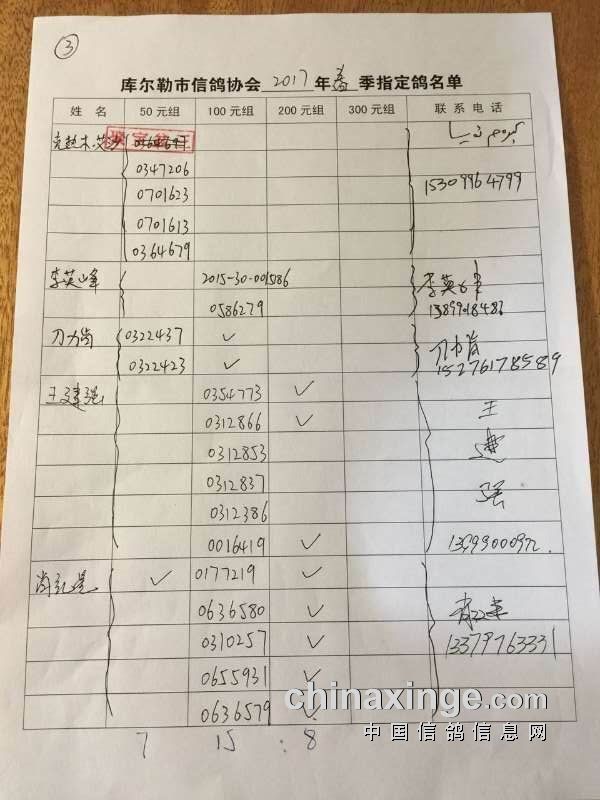 ③
库尔勒市信鸽协会 2017 年 春 季指定鸽名单
姓 名 50元组 100元组 200元组 300元组 联系电话
克热木·艾沙
0347206
0701623 15309964799
0701613
0364679
李英峰 2015-30-001586 李英峰
0586279
刀力岗 0322437 ✓
0322423 ✓ 15276178589
王建强 0354773 ✓ 王
0312866 ✓ 建
0312853
0312837 强
0312386
0016419 ✓
✓ 0177219 ✓
0636580 ✓
0310257 ✓ 13379763331
0655931 ✓
0636579 ✓
chinaxinge.com
中国信鸽信息网
7 15 : 8